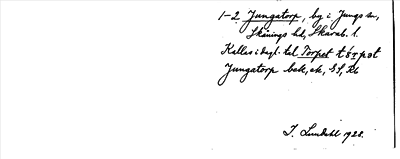 1-2 Jungatorp, by i Jungs sn,
Skånings hd, Skarab. l.
Kallas i dagl. tal Torpet
Jungatorp
J. Lundahl 1928.